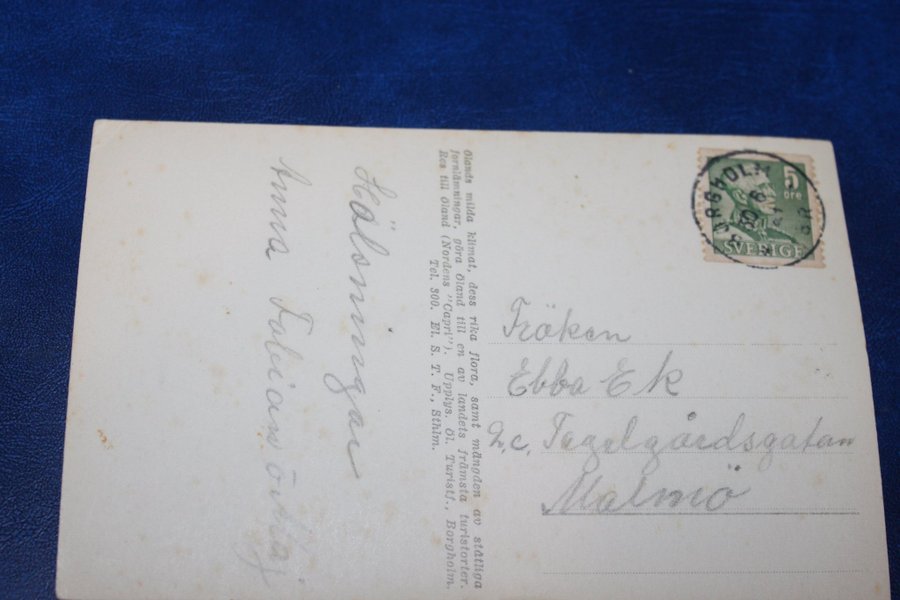 Hälsningar
Anna Fabian
Ölands milda klimat, dess rika flora, samt mängden av ståtliga
fornlämningar, göra Öland till en av landets främsta turistorter.
Res till Öland (Nordens "Capri"). Upplys. Öl. Turistf., Borgholm.
Tel. 300. El. S. T. F., Sthlm.
BORGHOLM
5
öre
SVERIGE
Fröken
Ebba Ek
2.c. Tegelgårdsgatan
Malmö